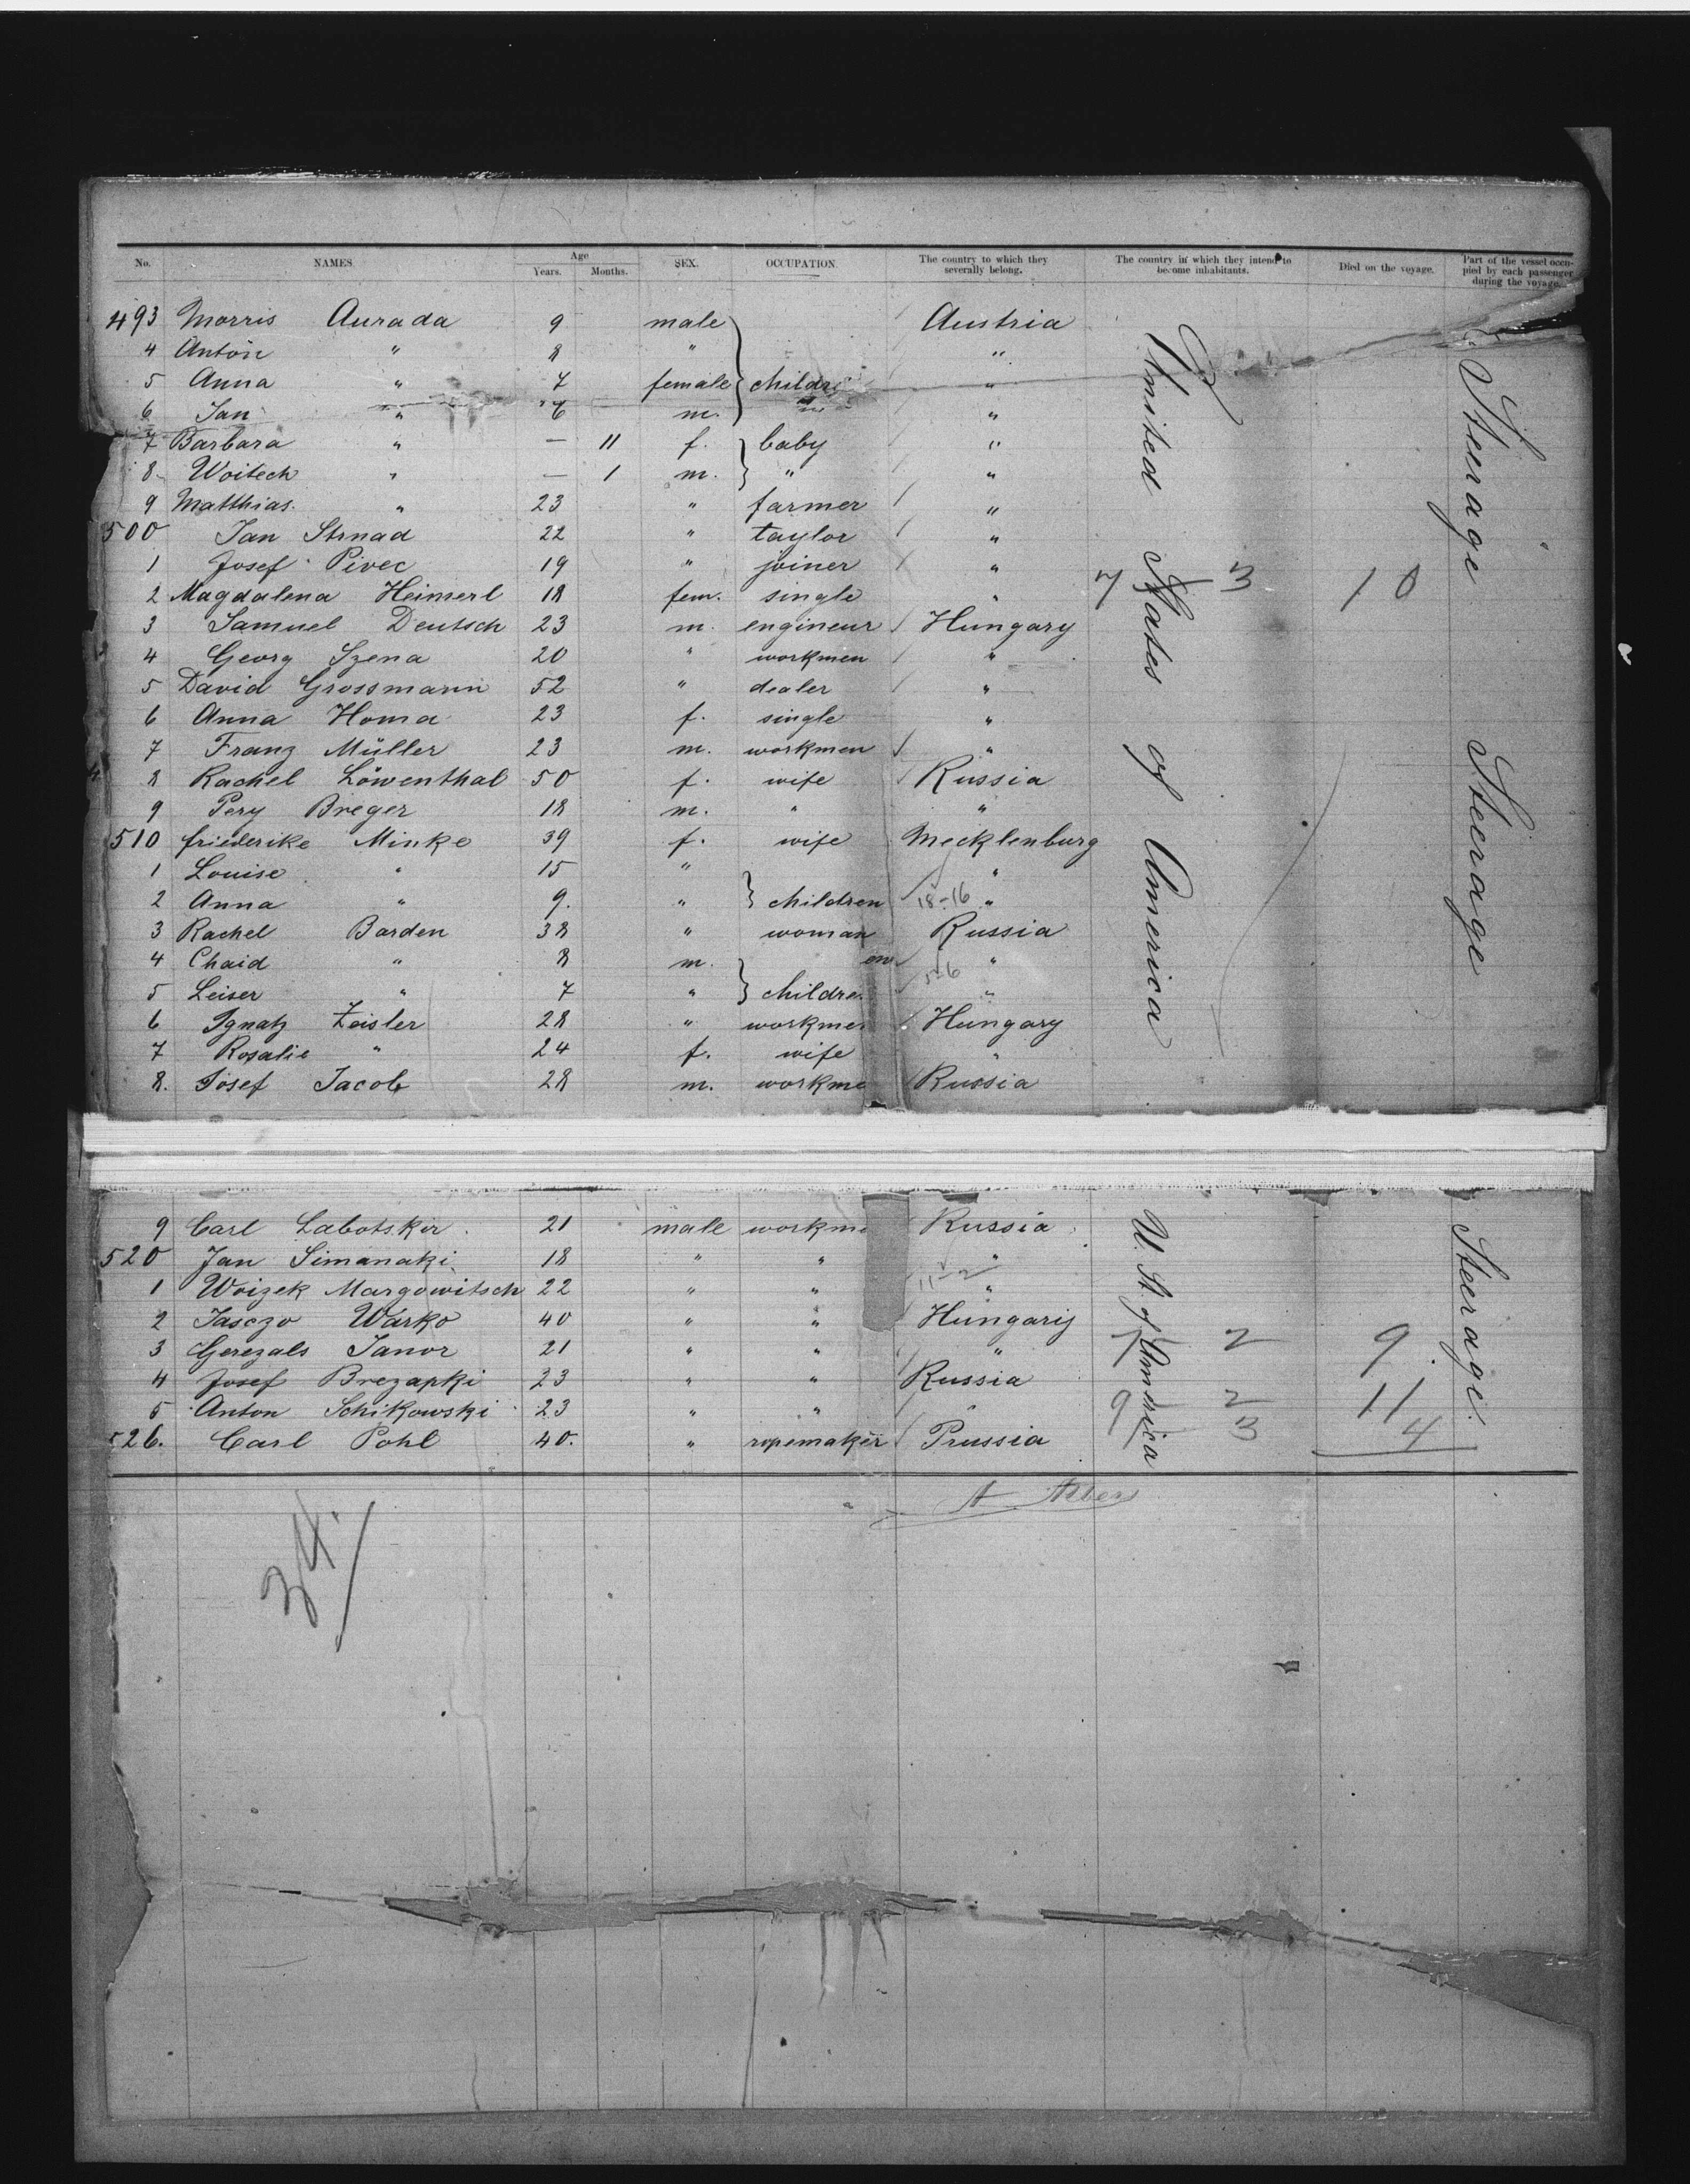 No. NAMES Age Years. Months. SEX. OCCUPATION. The country to which they severally belong. The country in which they intend to become inhabitants. Died on the voyage. Part of the vessel occupied by each passenger during the voyage.
493 Morris Aurada 9 male Austria
4 Anton " 8 " "
5 Anna " 7 female children "
6 Jan " 6 m. "
7 Barbara " — 11 f. baby "
8 Woitech " — 1 m. " "
9 Matthias " 23 " farmer "
500 Jan Strnad 22 " taylor "
1 Josef Pivec 19 " joiner "
2 Magdalena Heimerl 18 fem. single " 7 3 10
3 Samuel Deutsch 23 m. engineur Hungary
4 Georg Szena 20 " workmen "
5 David Grossmann 52 " dealer "
6 Anna Homa 23 f. single "
7 Franz Müller 23 m. workmen "
8 Rachel Löwenthal 50 f. wife Russia
9 Pery Breger 18 m. " "
510 friederike Minke 39 f. wife Mecklenburg
1 Louise " 15 " "
2 Anna " 9. " children 18-16 "
3 Rachel Barden 38 " woman Russia
4 Chaid " 8 m. en "
5 Leiser " 7 " childre "
6 Ignatz Zeisler 28 " workmen Hungary
7 Rosalie " 24 f. wife "
8. Josef Jacob 28 m. workme Russia
United States of America
Steerage Steerage
9 Carl Labotskir 21 male workme Russia
520 Jan Simanaki 18 " " "
1 Woizek Margowitsch 22 " " 11-2 "
2 Jasczo Warko 40 " " Hungarij
3 Gerezals Janor 21 " " " 7 2 9
4 Josef Brezapki 23 " " Russia
5 Anton Schikowski 23 " " " 9 2 11
526. Carl Pohl 40. " ropemaker Prussia 3 4
U. St. of America
Steerage.
34.